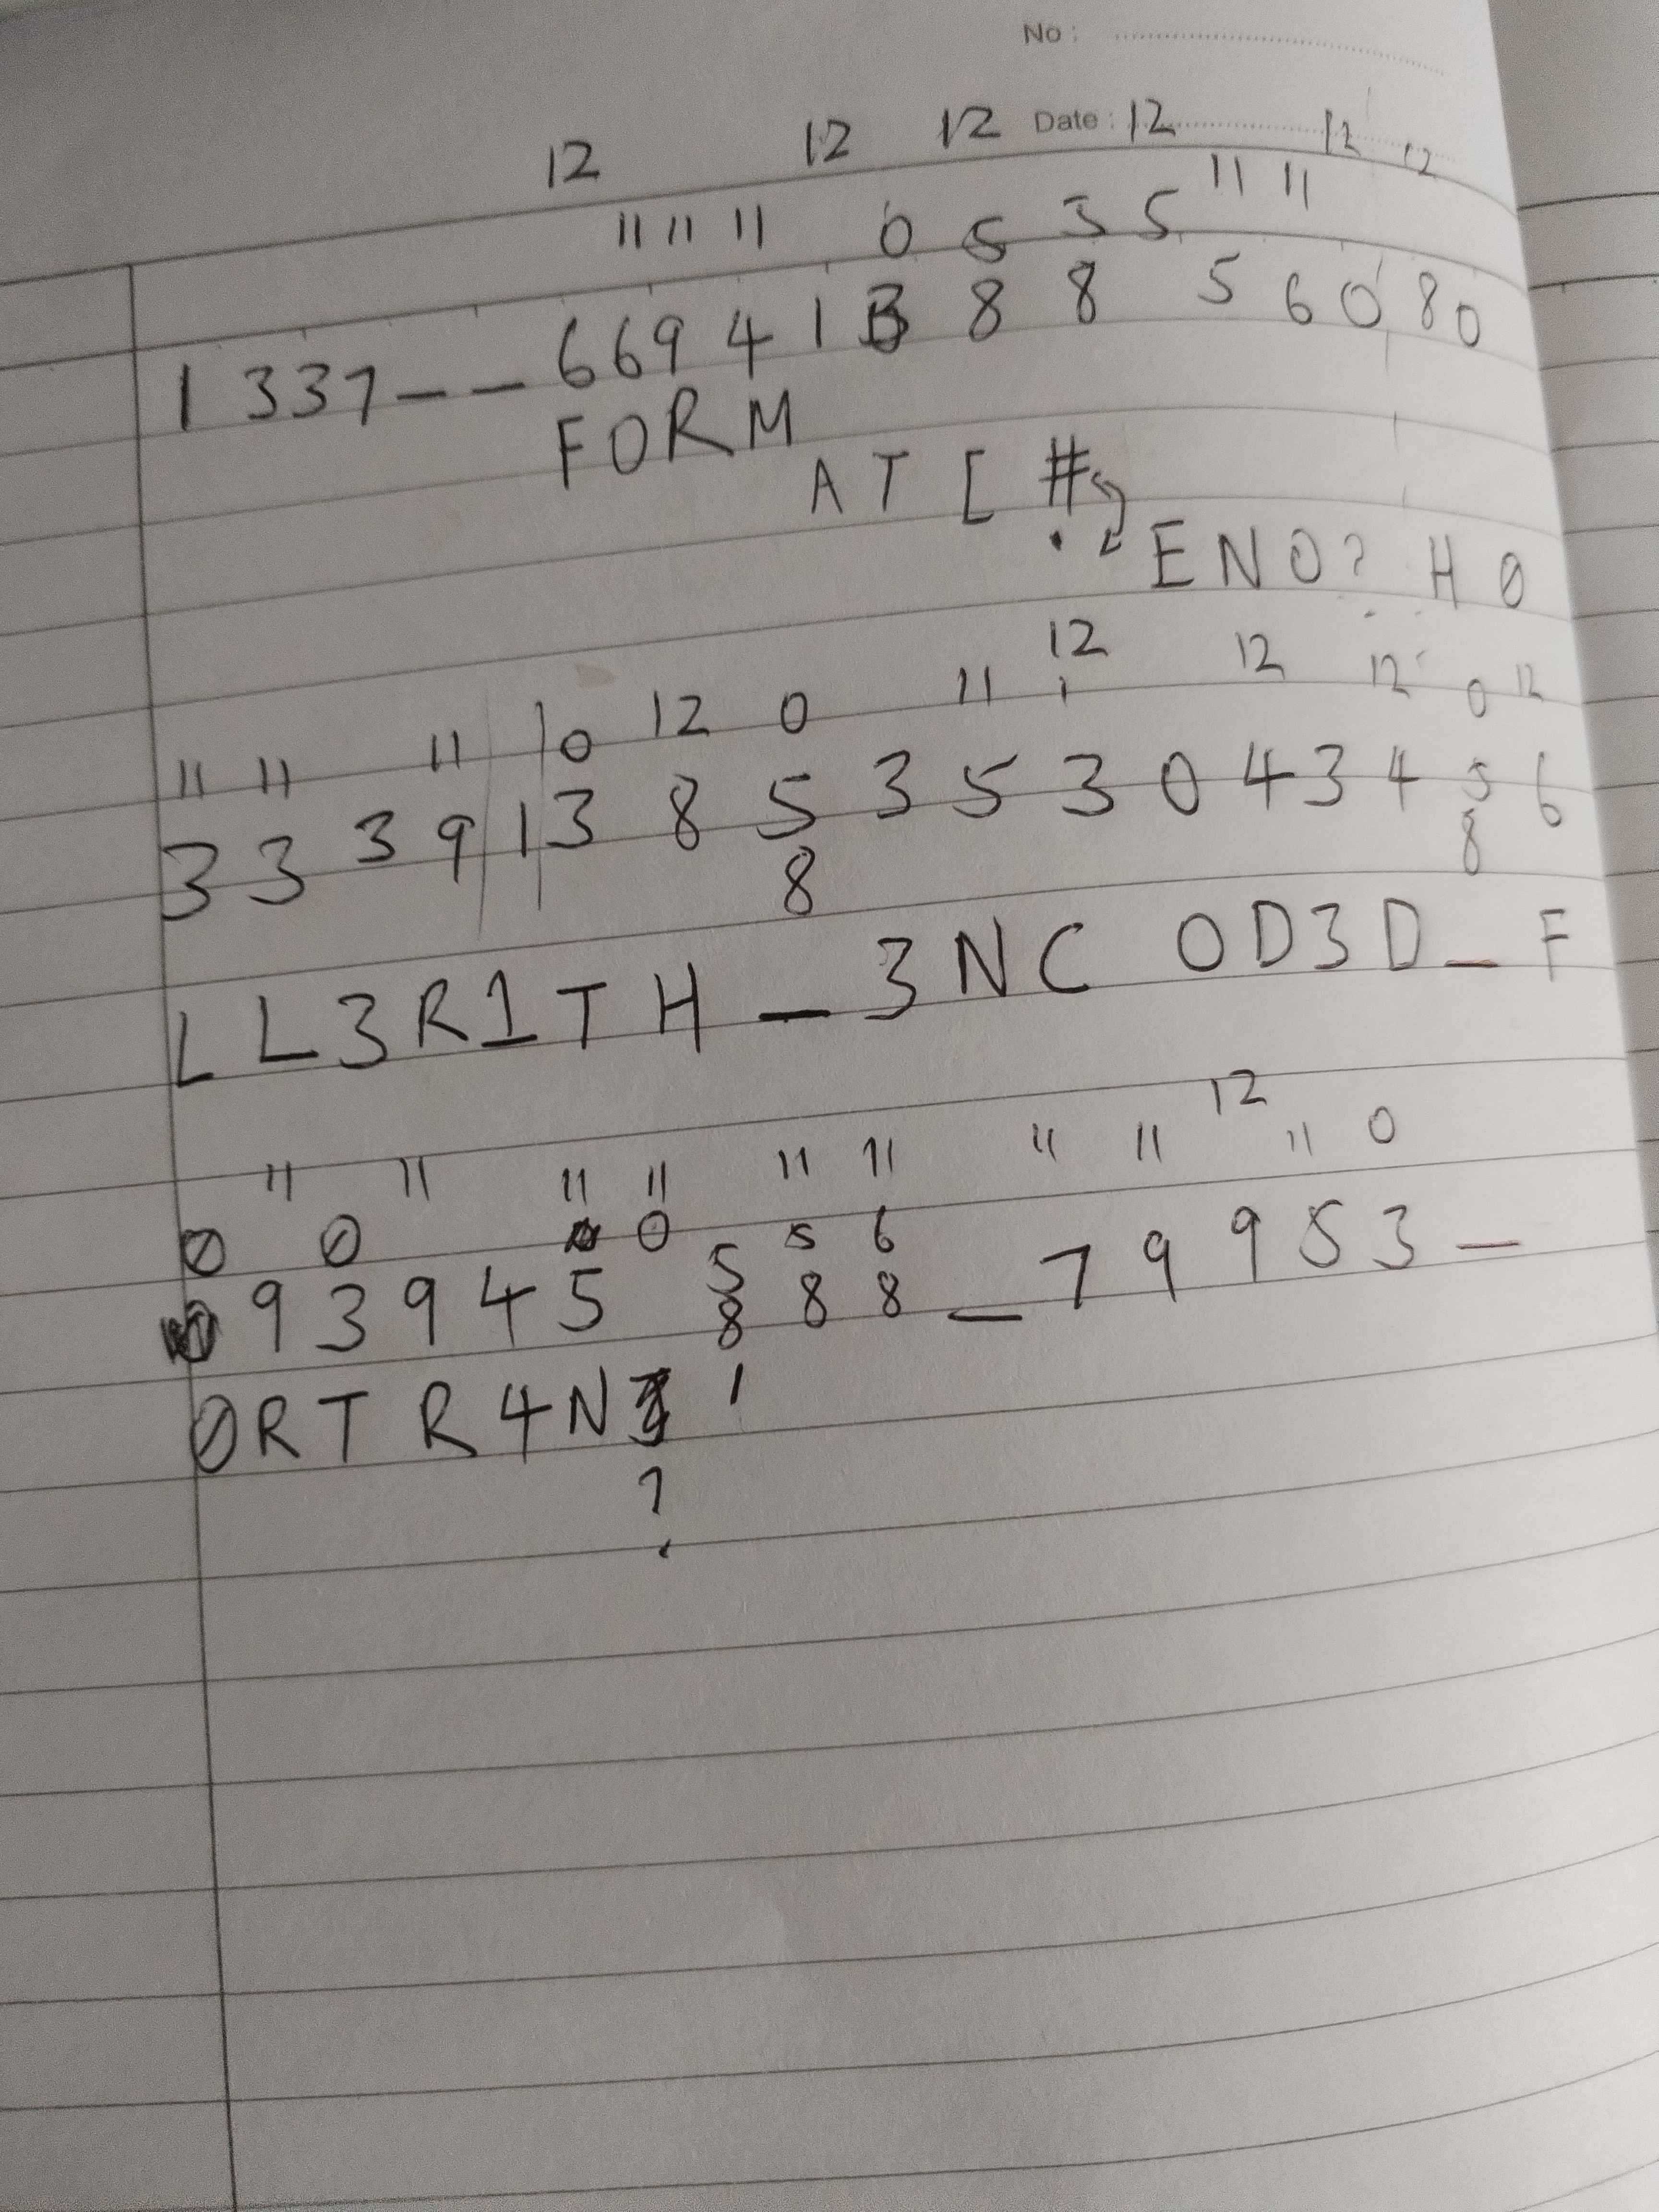 No :
Date :
12 12 12 12 12 12
11 11 11 0 5 3 5 11 11
1 337 -- 6 6 9 4 1 3 8 8 5 6 0 8 0
FORM
AT [ #
ENO? H0
12 12 12 0 12
11 11 11 0 12 0 11
3 3 3 9 1 3 8 5 3 5 3 0 4 3 4 5 6
8 8
LL3R1TH_3NC OD3D_F
12
11 11 11 11 11 11 11 11 11 0
0 0 0 5 6
0 9 3 9 4 5 5 8 8 _ 7 9 9 5 3 _
8
0RTR4N
?